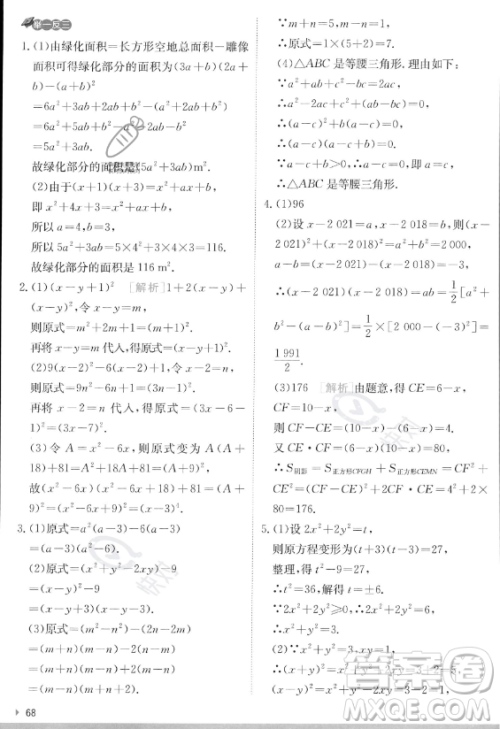 第一反三
1.(1)由绿化面积=长方形空地总面积-雕像
面积可得绿化部分的面积为(3a+b)(2a+
b)-(a+b)²
=6a²+3ab+2ab+b²-(a+b)²
=6a²+5ab+b²-a²-2ab-b²
=5a²+3ab.
故绿化部分的面积是(5a²+3ab)m².
(2)由于(x+1)(x+3)=x²+ax+b,
即x²+4x+3=x²+ax+b,
所以a=4,b=3,
所以5a²+3ab=5×4²+3×4×3=116.
故绿化部分的面积是116 m².
2.(1)(x-y+1)² [解析]1+2(x-y)+
(x-y)²,令x-y=m,
则原式=m²+2m+1=(m+1)²,
再将x-y=m代入,得原式=(x-y+1)².
(2)原式=9(x-2)²-6(x-2)+1,令x-2=n,
则原式=9n²-6n+1=(3n-1)²,
再将x-2=n代入,得原式=(3x-6-1)²
=(3x-7)².
(3)令A=x²-6x,则原式变为A(A+
18)+81=A²+18A+81=(A+9)²,
故(x²-6x)(x²-6x+18)+81=(x²-6x
+9)²=(x-3)⁴.
3.(1)原式=a²(a-3)-6(a-3)
=(a-3)(a²-6).
(2)原式=(x²+y²-2xy)-9
=(x-y)²-9
=(x-y+3)(x-y-3).
(3)原式=(m²-n²)-(2m+2n)
=(m+n)(m-n)-2(m+n)
=(m+n)(m-n-2),
∵m+n=5,m-n=1,
68
∴原式=1×(5+2)=7.
(4)△ABC是等腰三角形.理由如下:
∵a²+ab+c²-bc=2ac,
∴a²+c²-2ac+ab-bc=0,
∴(a-c)²+b(a-c)=0,
∴(a-c)(a-c+b)=0.
∵a-c+b>0,∴a-c=0,∴a=c,
∴△ABC是等腰三角形.
4.(1)96
(2)设x-2 021=a,x-2 018=b,则(x-
2 021)²+(x-2 018)²=a²+b²=2 000,
a-b=(x-2 021)-(x-2 018)=-3,
∴(x-2 021)(x-2 018)=ab=1/2[a²+
b²-(a-b)²]=1/2×[2 000-(-3)²]=
1 991/2.
(3)176 [解析]由题意,得CE=6-x,
CF=10-x,
则CF-CE=(10-x)-(6-x)=4.
又CF·CE=(10-x)(6-x)=80,
∴S阴影=S正方形CFGH+S正方形CEMN=CF²+
CE²=(CF-CE)²+2CF·CE=4²+2×
80=176.
5.(1)设2x²+2y²=t,
则原方程变形为(t+3)(t-3)=27,
整理,得t²-9=27,
∴t²=36,解得t=±6.
∵2x²+2y²≥0,∴2x²+2y²=6,
∴x²+y²=3.
(2)∵x²+y²=3,xy=1,
∴(x+y)²=x²+2xy+y²=3+2=5,
答案圈
MXQE.COM
快对
快对